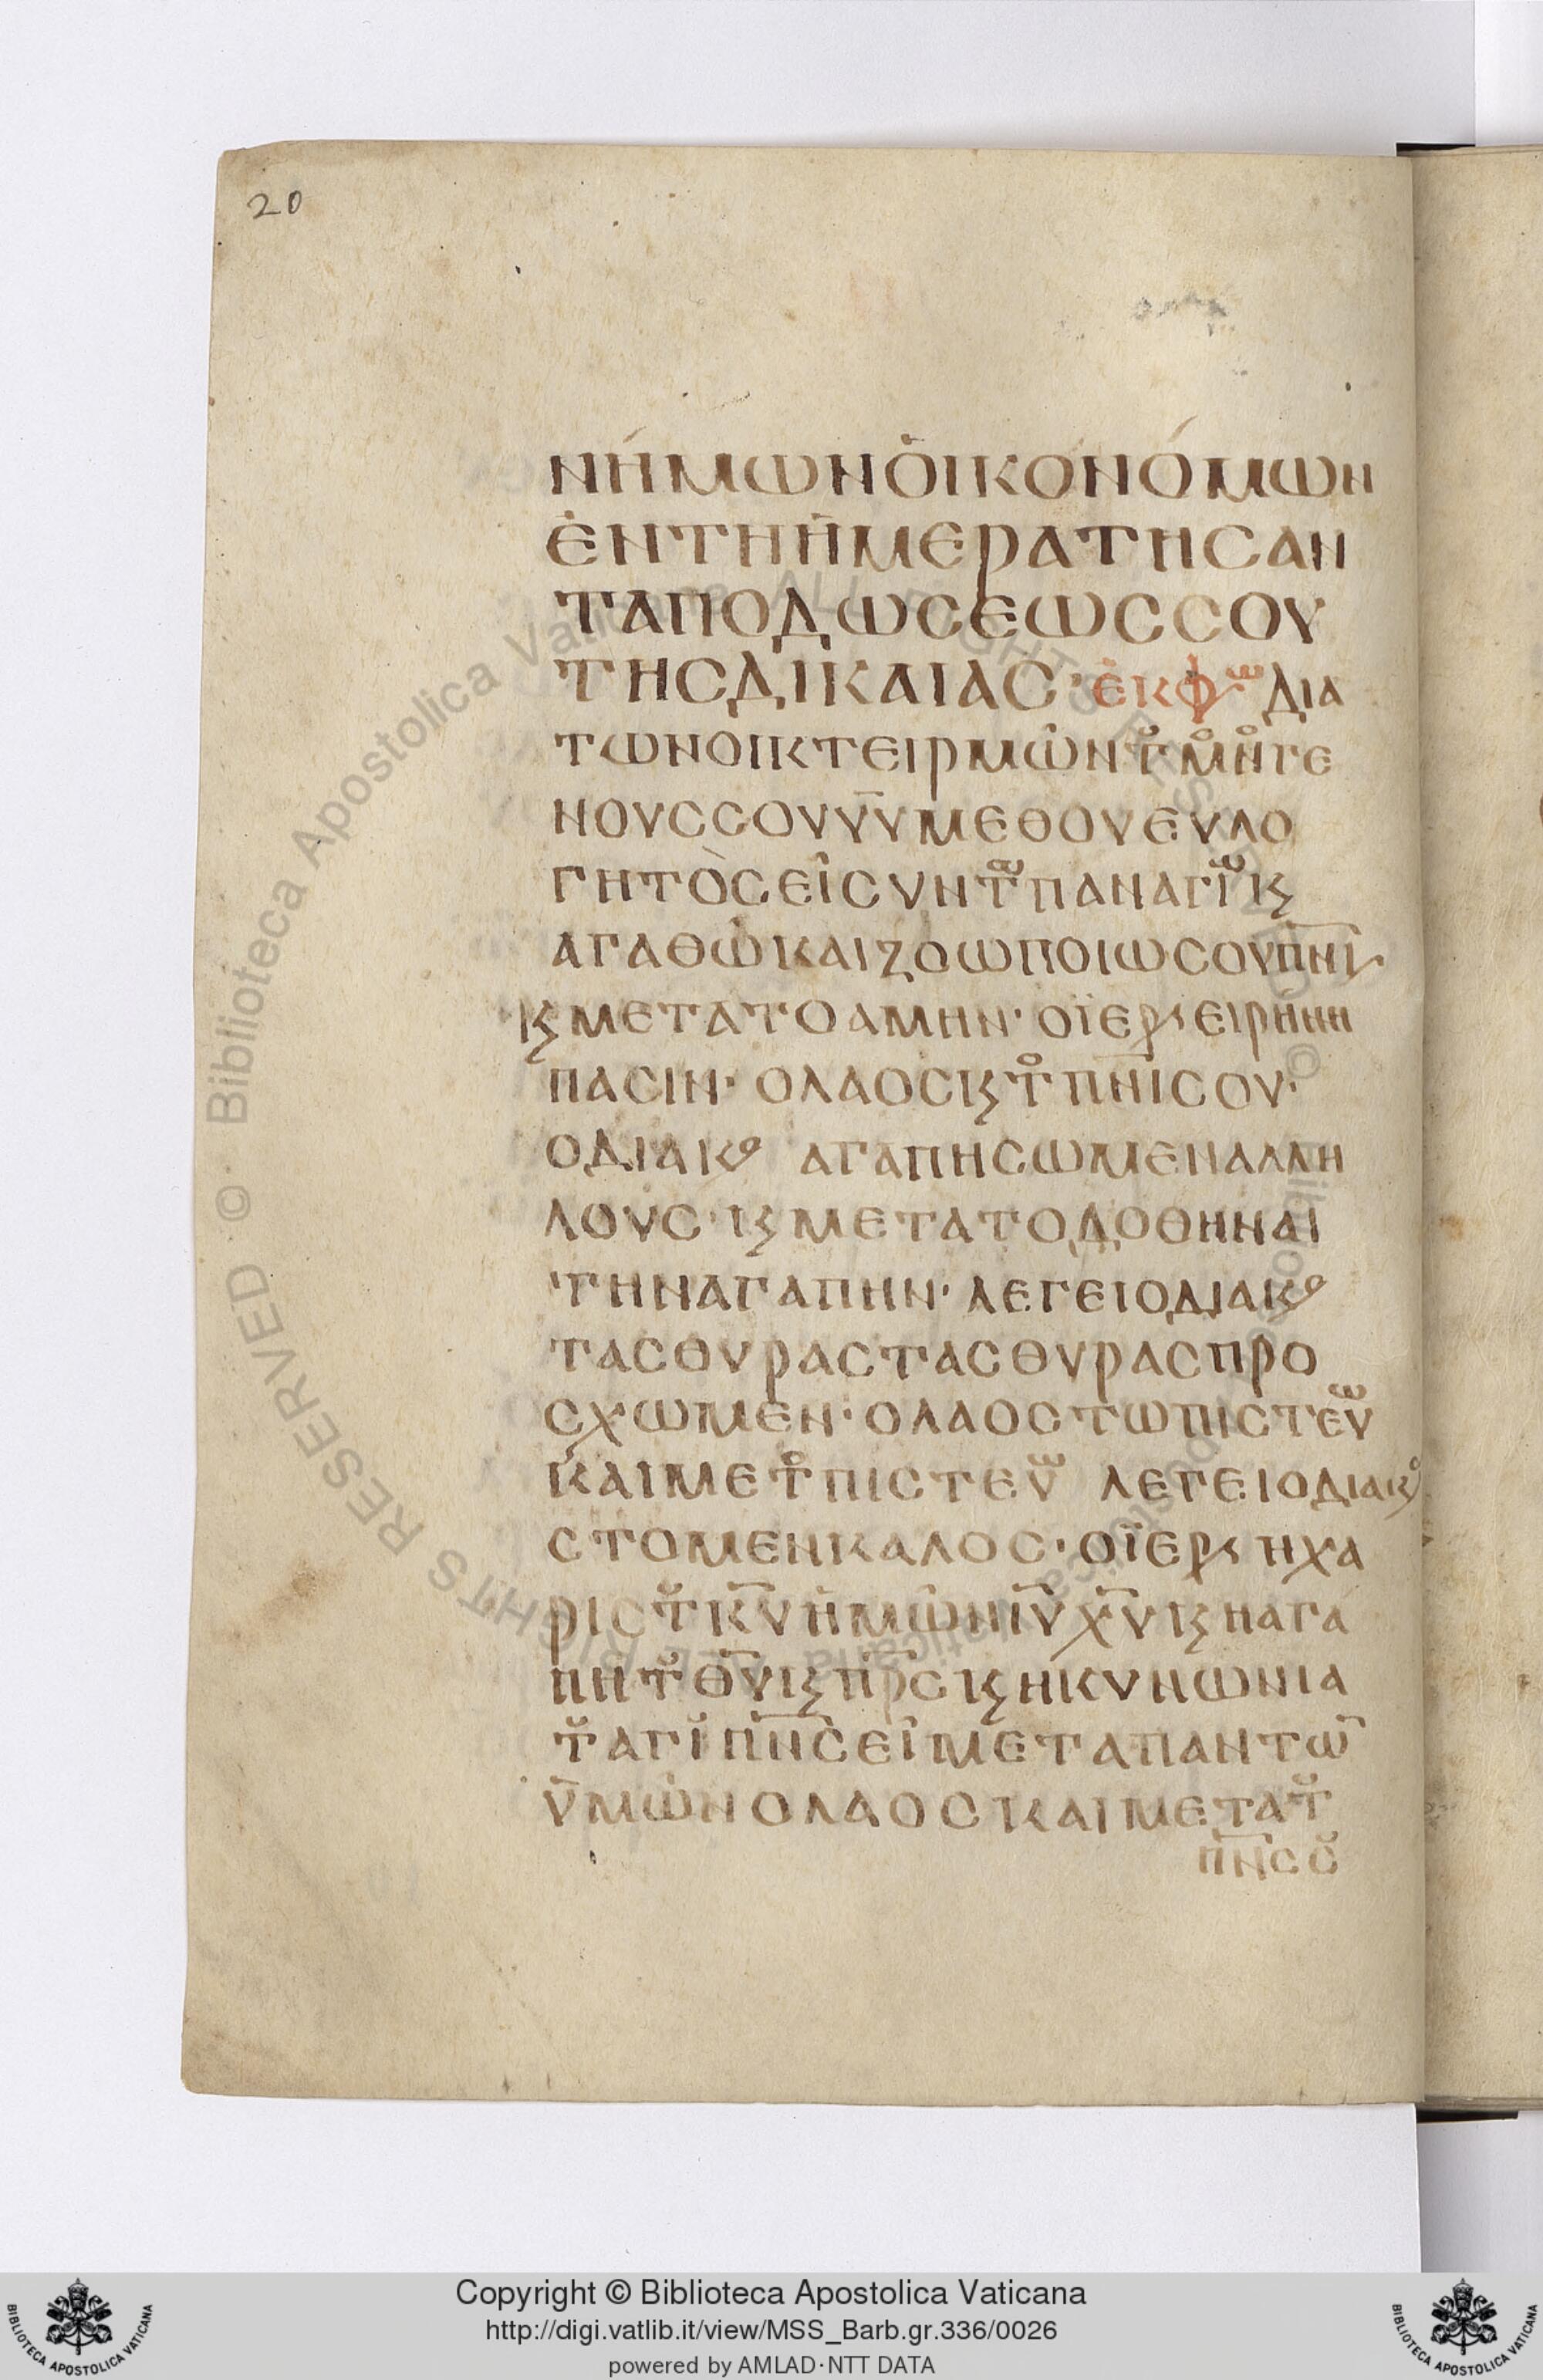 20
ΝΉΜΩΝὈΙΚΟΝΌΜΩΝ
ἘΝΤΗΗ̈ΜΕΡΑΤΗΣΑΝ
ΤΑΠΟΔΩΣΕΩΣΣΟΥ
ΤΗΣΔΙΚΑΙΑΣ· ἘΚΦΩ ΔΙΑ
ΤΩΝΟΙΚΤΕΙΡΜΩ͂ΝΤȢΜΟΝΟΓΕ
ΝΟΥΣΣΟΥΥ̅Υ̅ΜΕΘΟΥΕΥΛΟ
ΓΗΤῸΣΕΙ͂ΣΥΝΤΩΠΑΝΑΓΙΩϏ
ΑΓΑΘΩ͂ΚΑΙΖΟΩΠΟΙΩΣΟΥΠ̅Ν̅Ι̅
ϏΜΕΤΑΤΟΑΜΗΝ· ΟΪΕΡϚΕΙΡΗΝΗ
ΠΑΣΙΝ· ΟΛΑΟΣϏΤΟΠ̅Ν̅Ι̅ΣΟΥ·
ΟΔΙΑΚΟ ΑΓΑΠΗΣΩΜΕΝΑΛΛΗ
ΛΟΥΣ· ϏΜΕΤΑΤΟΔΟΘΗΝΑΙ
ΤΗΝΑΓΑΠΗΝ· ΛΕΓΕΙΟΔΙΑΚΟ
ΤΑΣΘΥΡΑΣΤΑΣΘΥΡΑΣΠΡΟ
ΣΧΩΜΕΝ· ΟΛΑΟΣΤΩΠΙΣΤΕΥΩ
ΚΑΙΜΕΤΟΠΙΣΤΕΥΩ ΛΕΓΕΙΟΔΙΑΚΟ
ΣΤΟΜΕΝΚΑΛΟΣ· ΟΪΕΡϚ ΗΧΑ
ΡΙΣΤȢΚ̅Υ̅ΗΜΩ͂ΝΙ̅Υ̅Χ̅Υ̅ϏΗΑΓΑ
ΠΗΤȢΘ̅Υ̅ϏΠ̅Ρ̅Σ̅ϏΗΚΥΝΩΝΙΑ
ΤȢΑΓΙȢΠ̅Ν̅Σ̅ΕΙ͂ΜΕΤΑΠΑΝΤΩ̅
ΥΜΩ͂ΝΟΛΑΟΣΚΑΙΜΕΤΑΤȢ
Π̅Ν̅Σ̅ΣȢ
Copyright © Biblioteca Apostolica Vaticana
http://digi.vatlib.it/view/MSS_Barb.gr.336/0026
powered by AMLAD·NTT DATA
BIBLIOTECA APOSTOLICA VATICANA
BIBLIOTECA APOSTOLICA VATICANA
© Biblioteca Apostolica Vaticana ALL RIGHTS RESERVED